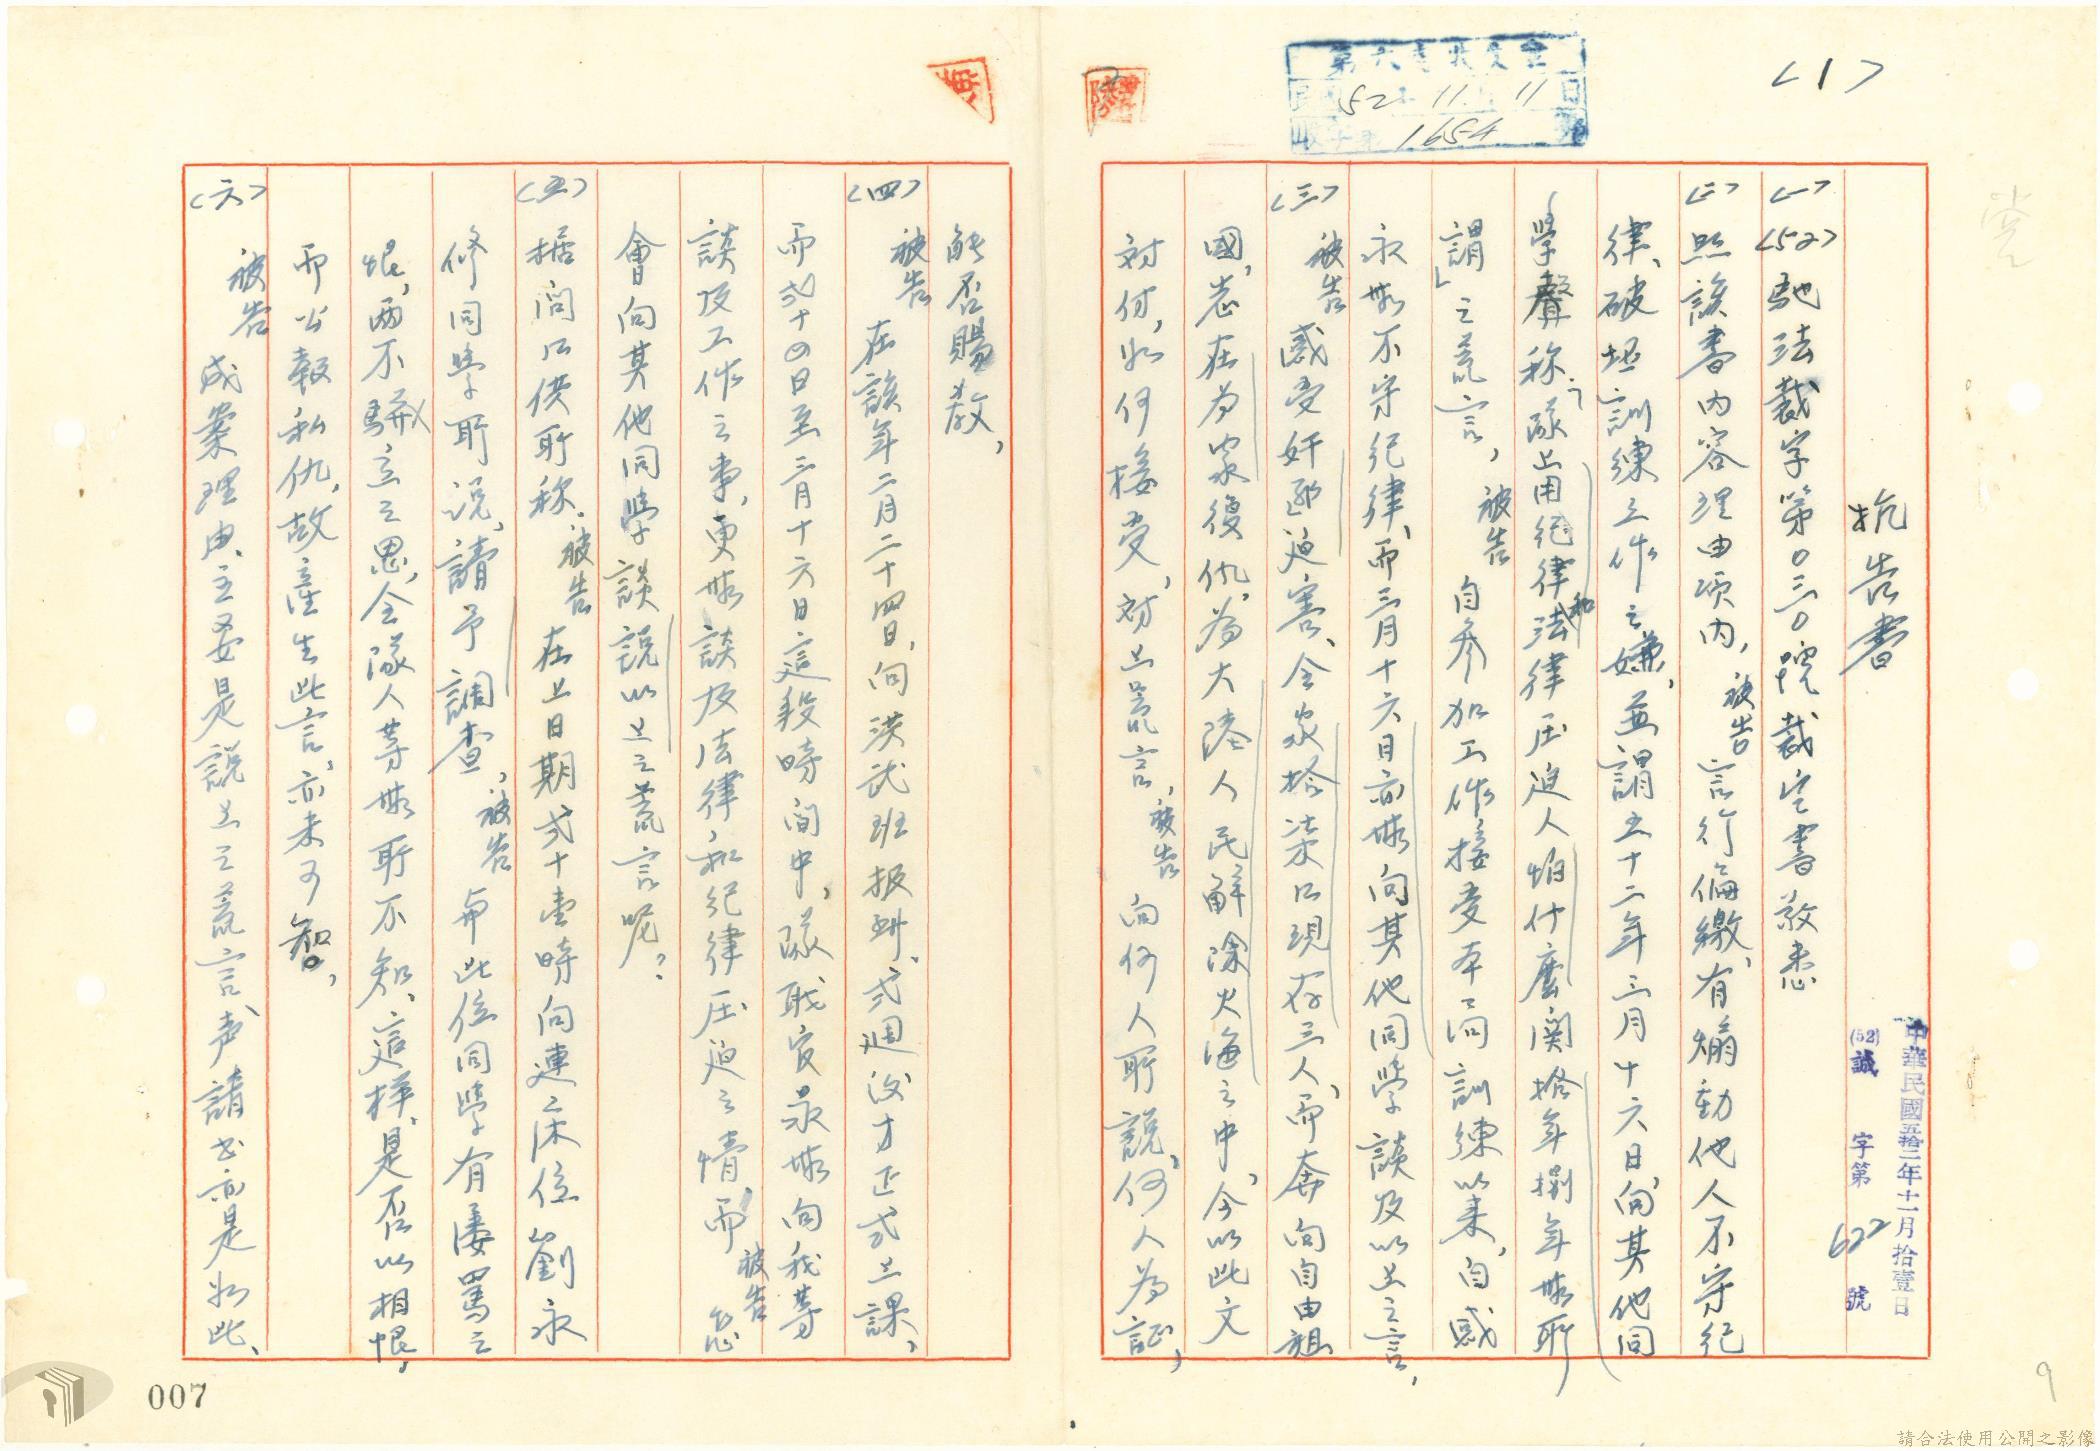 〈1〉
52 11 11
1654
抗告書
中華民國五拾二年十一月拾壹日
(52)誠字第622號
〈一〉〈52〉馳法裁字第0三0號裁定書敬悉
〈二〉照該書內容理由項內，被告言行偏緻、有煽動他人不守紀
律、破坏訓練工作之嫌，並謂五十二年三月十六日，向其他同
學聲称「隊上用紀律和法律压迫人怕什麼関拾年捌年無所
謂」之荒言，被告自參加工作接受本訓練以来，自感
永無不守紀律，而三月十六日亦無向其他同學談及以上之言，
〈三〉被告感受奸匪迫害、全家拾柒口現存三人，而奔向自由祖
國，志在为家復仇，为大陸人民解除火海之中，今以此文
对付，如何接受，对上荒言，被告向何人所說，何人為証，
能否賜教，
〈四〉被告在該年二月二十四日，向洪武班报到，弍週後才正式上課，
而弍十四日至三月十六日這段時间中，隊职官最無向我等
談及工作之事，更無談及法律，和紀律压迫之情，而被告怎
會向其他同學談說以上之荒言呢？
〈五〉据问口供所称，被告在上日期弍十壹時向連床位劉永
修同學所说，請予調查，被告与此位同學有凄罵之
恨，两不駢立之恩，全隊人等無所不知，這樣，是否以相恨，
而公報私仇，故產生此言，亦未可智，
〈六〉被告成案理由，主要是說上之荒言，声請书亦是如此、
007
9
請合法使用公開之影像